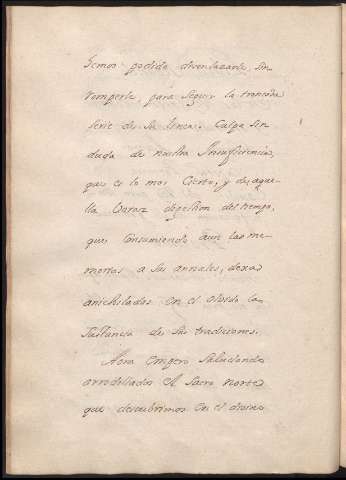 hemos podido desenlazarle, sin
romperle, para seguir la trancada
serie de su linea. Culpa sin
duda de nuestra Insuficiencia,
que es lo mas Cierto, y de aque-
lla Voraz digestion del tiempo,
que consumiendo aun las me-
morias a sus annales, dexa
anichilados en el olvido la
sustancia de sus tradiciones.
Ahora empero saludando
arrodillados el sacro norte
que descubrimos en el divino